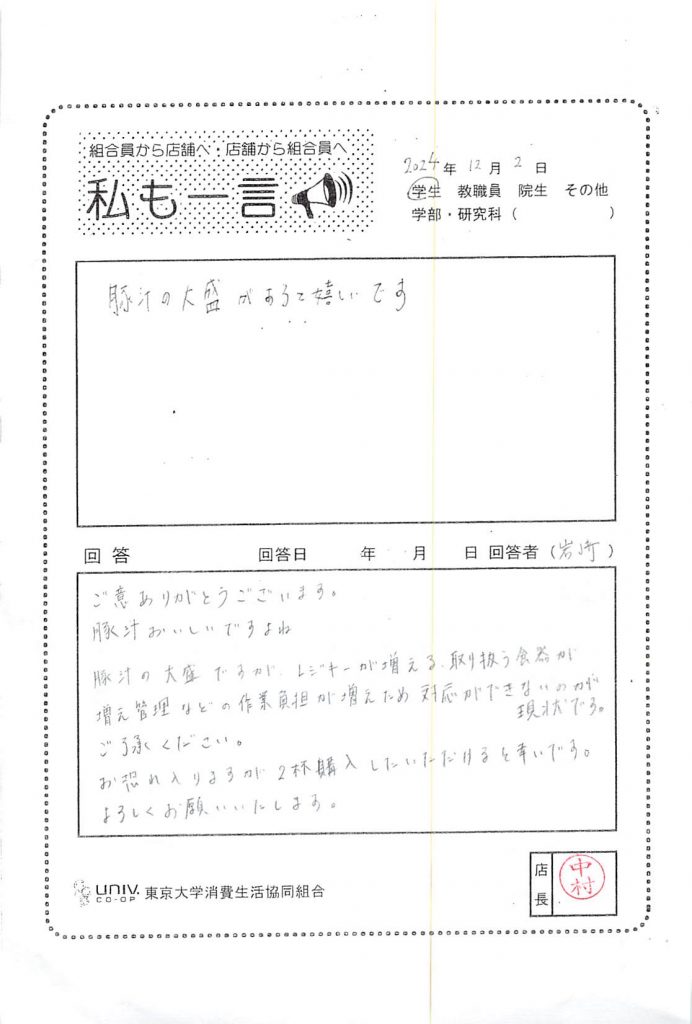 組合員から店舗へ・店舗から組合員へ
私も一言
2024年 12月 2日
学生 教職員 院生 その他
学部・研究科（ ）
豚汁の大盛があると嬉しいです
回答 回答日 年 月 日 回答者（岩崎）
ご意ありがとうございます。
豚汁おいしいですよね
豚汁の大盛ですが、レジキーが増える、取り扱う食器が
増え管理などの作業負担が増えため対応ができないのが
現状です。
ご了承ください。
お恐れ入りますが2杯購入したいただけると幸いです。
よろしくお願いいたします。
UNIV. CO-OP 東京大学消費生活協同組合
店長 中村